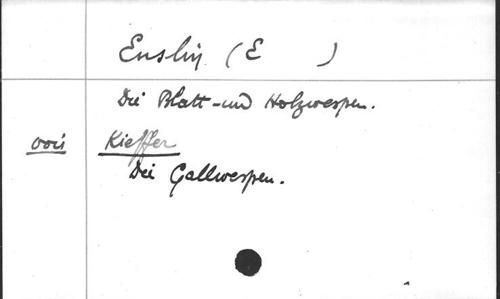 Enslin (E )
Die Blatt-und Holzwespen.
voir Kieffer
Die Gallwespen.